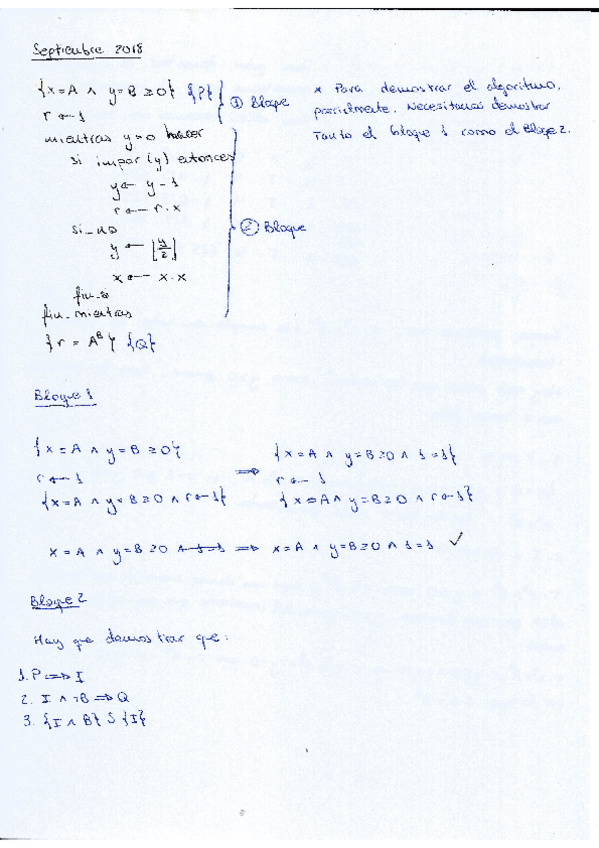 Septiembre 2018
{x=A ∧ y=B ≥0} {P}
r ← 1
① Bloque
mientras y≠0 hacer
si impar(y) entonces
y ← y-1
r ← r·x
si_no
y ← ⌊y/2⌋
x ← x·x
fin_si
fin_mientras
② Bloque
{r = A^B} {Q}
* Para demostrar el algoritmo,
parcialmente. Necesitamos demostrar
Tanto el bloque 1 como el Bloque 2.
Bloque 1
{x=A ∧ y=B ≥0}
r ← 1
{x=A ∧ y=B ≥0 ∧ r←1}
⟹
{x=A ∧ y=B≥0 ∧ 1=1}
r ← 1
{x=A ∧ y=B≥0 ∧ r←1}
x=A ∧ y=B≥0 ∧ 1=1 ⟹ x=A ∧ y=B≥0 ∧ 1=1 ✓
Bloque 2
Hay que demostrar que:
1. P ⟹ I
2. I ∧ ¬B ⟹ Q
3. {I ∧ B} S {I}